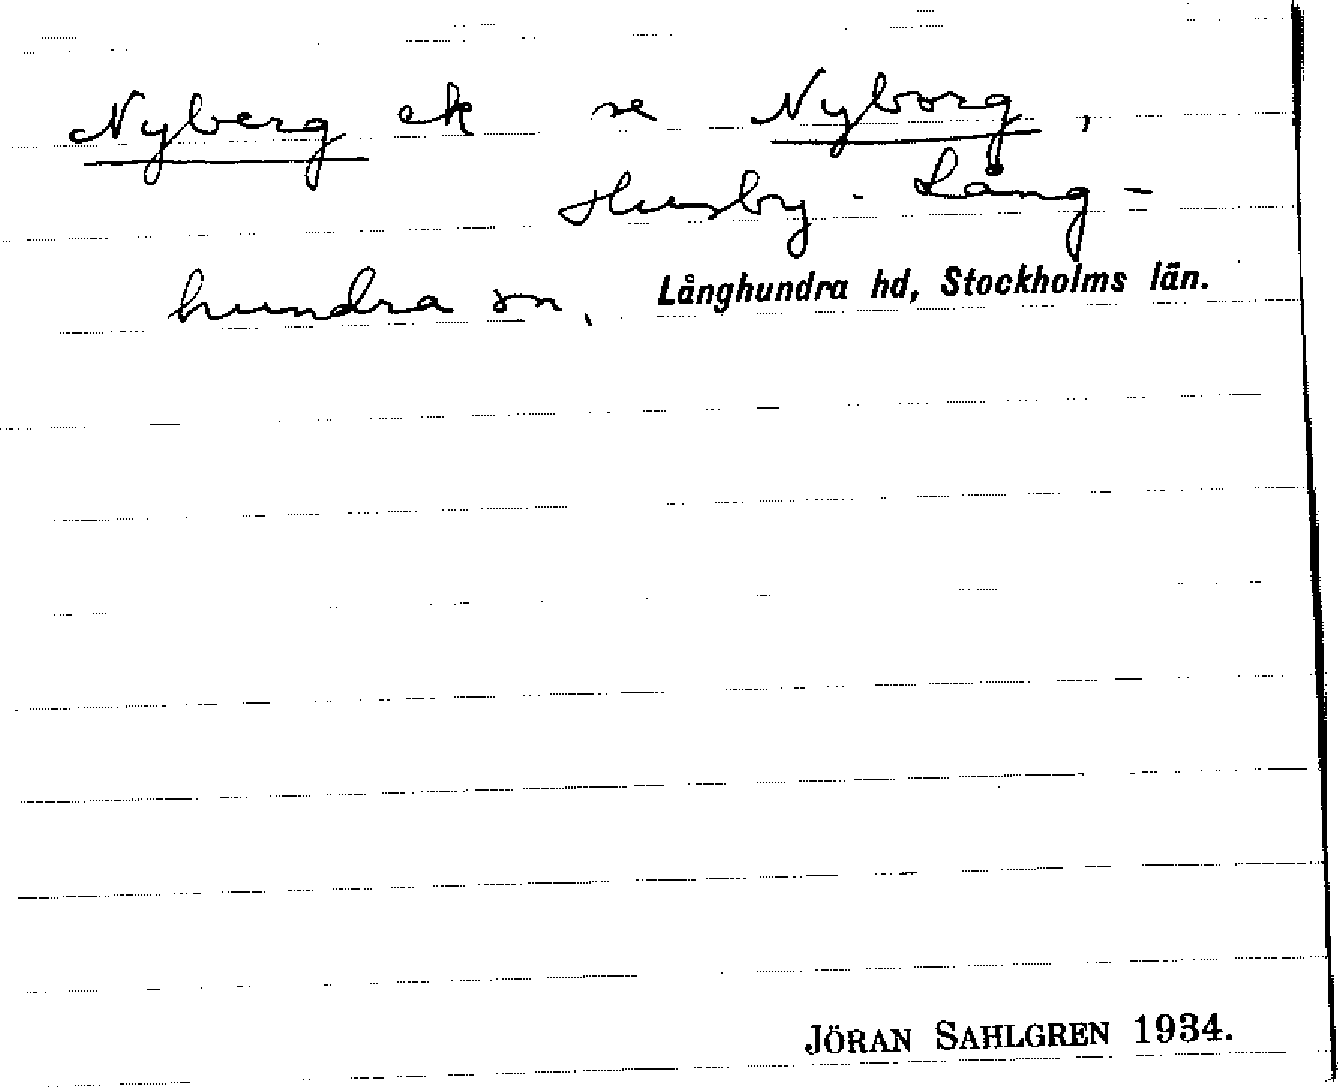 Nyberg ek se Nyborg,
Husby-Lång-
hundra sn, Långhundra hd, Stockholms län.
JÖRAN SAHLGREN 1934.